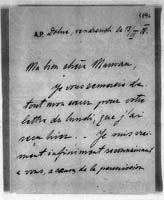 A.P. Dolna, vendredi le 18
Ma bien chère Maman,
Je vous remercie de
tout mon cœur pour votre
lettre de lundi, que j'ai
reçu hier. Je suis vrai-
ment infiniment reconnaissant
à vous, à cause de la permission